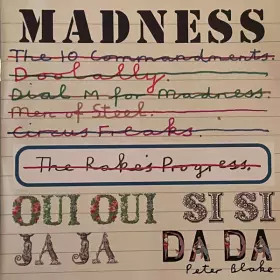 MADNESS
The 10 Commandments.
Doolally.
Dial M for Madness.
Men of Steel.
Circus Freaks.
The Rake's Progress.
OUI OUI SI SI
JA JA DA DA
Peter Blake